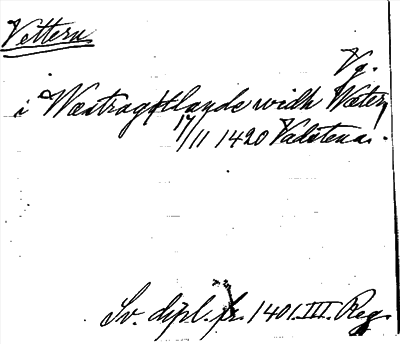 Vettern
Vg.
i Wæstragøtlande widh Wæter
17/11 1420 Vadstena.
Sv. dipl. fr. 1401. III. Reg.